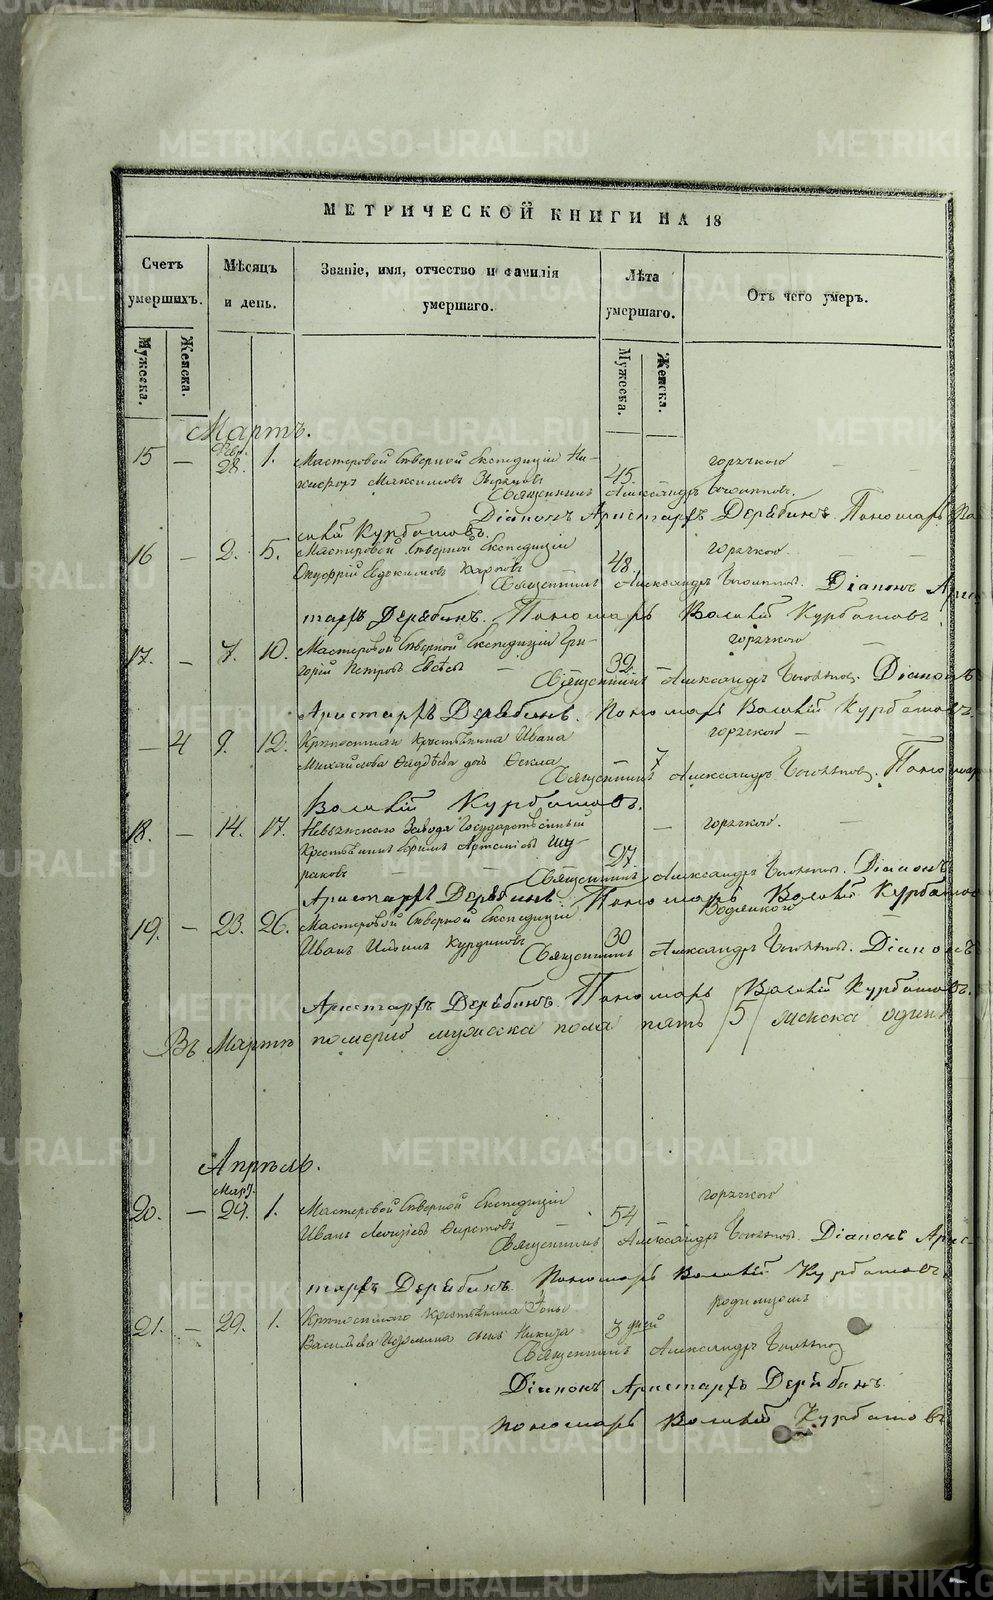 METRIKI.GASO-URAL.RU
МЕТРИЧЕСКОЙ КНИГИ НА 18
Счетъ умершихъ.
Мѣсяцъ и день.
Званіе, имя, отчество и фамилія умершаго.
Лѣта умершаго.
Отъ чего умеръ.
Мужеска.
Женска.
Мужеска.
Женска.
Мартъ.
Февр.
15 — 28. 1. Мастеровой Сѣверной Експедиціи Ни-
кифоръ Максимовъ 45. горячкою
Священникъ Александръ
Діаконъ Аристархъ Дерябинъ. Пономарь Ва
силій Курбатовъ.
16 — 2. 5. Мастеровой Сѣверной Експедиціи
Онуфрій Евдокимовъ Карповъ 48. горячкою.
Священникъ Александръ Діаконъ Арис
тархъ Дерябинъ. Пономарь Василій Курбатовъ.
17. — 7. 10. Мастеровой Сѣверной Експедиціи Гри-
горій Петровъ 39. горячкою
Священникъ Александръ Діаконъ
Аристархъ Дерябинъ. Пономарь Василій Курбатовъ.
— 4 9. 12. Крестьянина Ивана
Михайлова дочь Фекла 7 горячкою
Священникъ Александръ Пономарь
Василій Курбатовъ.
18. — 14. 17. Невьянскаго Завода Государственный
Крестьянинъ Ефимъ Артемьевъ Шу-
раковъ 27. горячкою.
Священникъ Александръ Діаконъ
Аристархъ Дерябинъ. Пономарь Василій Курбатов
19. — 23. 26. Мастеровой Сѣверной Експедиціи
Иванъ Ильинъ 30 Водянкою
Священникъ Александръ Діаконъ
Аристархъ Дерябинъ. Пономарь Василій Курбатовъ.
Въ Мартѣ померло мужеска пола пять /5/ женска одинъ
Апрѣль.
Март.
20. — 29. 1. Мастеровой Сѣверной Експедиціи
Иванъ 54 горячкою
Священникъ Александръ Діаконъ Арис-
тархъ Дерябинъ. Пономарь Василій Курбатовъ.
21. — 29. 1. Крестьянина
Васильева сынъ Никита 3 дней родимцомъ
Священникъ Александръ
Діаконъ Аристархъ Дерябинъ.
Пономарь Василій Курбатовъ